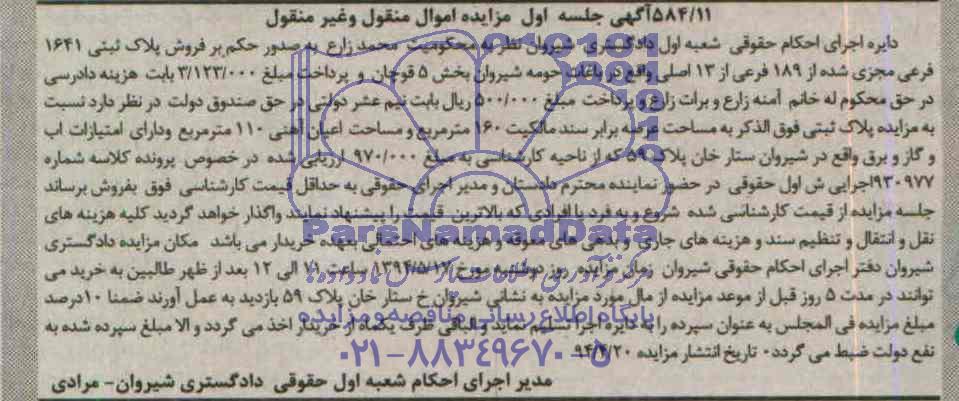 ۵۸۴/۱۱آگهی جلسه اول مزایده اموال منقول وغیر منقول
دایره اجرای احکام حقوقی شعبه اول دادگستری شیروان نظر به محکومیت محمد زارع به صدور حکم بر فروش پلاک ثبتی ۱۶۴۱
فرعی مجزی شده از ۱۸۹ فرعی از ۱۳ اصلی واقع در باغات حومه شیروان بخش ۵ قوچان و پرداخت مبلغ ۳/۱۲۳/۰۰۰ بابت هزینه دادرسی
در حق محکوم له خانم آمنه زارع و برات زارع و پرداخت مبلغ ۵۰۰/۰۰۰ ریال بابت نیم عشر دولتی در حق صندوق دولت در نظر دارد نسبت
به مزایده پلاک ثبتی فوق الذکر به مساحت عرصه برابر سند مالکیت ۱۶۰ مترمربع و مساحت اعیان آهنی ۱۱۰ مترمربع ودارای امتیازات اب
و گاز و برق واقع در شیروان ستار خان پلاک ۵۹ که از ناحیه کارشناسی به مبلغ ۹۷۰/۰۰۰ ارزیابی شده در خصوص پرونده کلاسه شماره
۹۳۰۹۷۷اجرایی ش اول حقوقی در حضور نماینده محترم دادستان و مدیر اجرای حقوقی به حداقل قیمت کارشناسی فوق بفروش برساند
جلسه مزایده از قیمت کارشناسی شده شروع و به فرد یا افرادی که بالاترین قیمت را پیشنهاد نمایند واگذار خواهد گردید کلیه هزینه های
نقل و انتقال و تنظیم سند و هزینه های جاری و بدهی های معوقه و هزینه های احتمالی بعهده خریدار می باشد مکان مزایده دادگستری
شیروان دفتر اجرای احکام حقوقی شیروان زمان مزایده روز دوشنبه مورخ ساعت ۱۱ الی ۱۲ بعد از ظهر طالبین به خرید می
توانند در مدت ۵ روز قبل از موعد مزایده از مال مورد مزایده به نشانی شیروان خ ستار خان پلاک ۵۹ بازدید به عمل آورند ضمنا ۱۰درصد
مبلغ مزایده فی المجلس به عنوان سپرده را به دایره اجرا تسلیم نماید و الباقی ظرف یکماه از خریدار اخذ می گردد و الا مبلغ سپرده شده به
نفع دولت ضبط می گردد۰ تاریخ انتشار مزایده ۹۴/۴/۲۰
مدیر اجرای احکام شعبه اول حقوقی دادگستری شیروان- مرادی
ParsNamadData
پایگاه اطلاع رسانی مناقصه و مزایده
۰۲۱-۸۸۳۴۹۶۷۰-۵